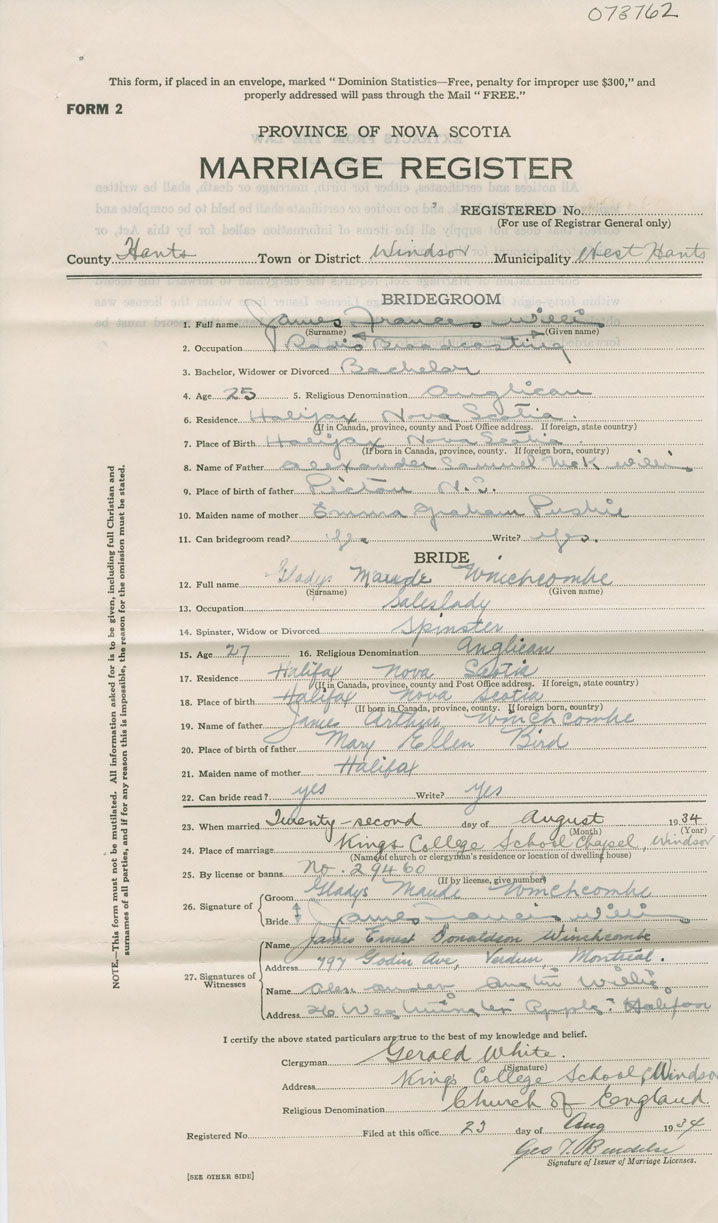 073762
This form, if placed in an envelope, marked “ Dominion Statistics—Free, penalty for improper use $300,” and
properly addressed will pass through the Mail “ FREE.”
FORM 2
PROVINCE OF NOVA SCOTIA
MARRIAGE REGISTER
REGISTERED No.
(For use of Registrar General only)
County Hants Town or District Windsor Municipality West Hants
BRIDEGROOM
1. Full name James Francis Willis
(Surname) (Given name)
2. Occupation Radio Broadcasting
3. Bachelor, Widower or Divorced Bachelor
4. Age 25 5. Religious Denomination Anglican
6. Residence Halifax Nova Scotia.
(If in Canada, province, county and Post Office address. If foreign, state country)
7. Place of Birth Halifax Nova Scotia.
(If born in Canada, province, county. If foreign born, country)
8. Name of Father Alexander Samuel McK Willis
9. Place of birth of father Pictou N.S.
10. Maiden name of mother Emma Graham
11. Can bridegroom read? Yes Write? Yes.
BRIDE
12. Full name Gladys Maude Winchcombe
(Surname) (Given name)
13. Occupation Saleslady
14. Spinster, Widow or Divorced Spinster
15. Age 27 16. Religious Denomination Anglican
17. Residence Halifax Nova Scotia
(If in Canada, province, county and Post Office address. If foreign, state country)
18. Place of birth Halifax Nova Scotia
(If born in Canada, province, county. If foreign born, country)
19. Name of father James Arthur Winchcombe
20. Place of birth of father Mary Ellen Bird
21. Maiden name of mother Halifax
22. Can bride read? yes Write? Yes
23. When married Twenty-second day of August 1934
(Month) (Year)
24. Place of marriage Kings College School Chapel, Windsor
(Name of church or clergyman's residence or location of dwelling house)
25. By license or banns No. 29460
(If by license, give number)
26. Signature of
Groom Gladys Maude Winchcombe
Bride James Francis Willis
27. Signatures of Witnesses
Name James Ernest Donaldson Winchcombe
Address 797 Godin Ave, Verdun Montreal.
Name Alexander Austin Willis
Address 26 Westminster Halifax
I certify the above stated particulars are true to the best of my knowledge and belief.
Clergyman Gerald White.
(Signature)
Address Kings College School, Windsor
Religious Denomination Church of England.
Registered No. Filed at this office 23 day of Aug 1934
Geo
Signature of Issuer of Marriage Licenses.
[SEE OTHER SIDE]
NOTE.—This form must not be mutilated. All information asked for is to be given, including full Christian and
surnames of all parties, and if for any reason this is impossible, the reason for the omission must be stated.